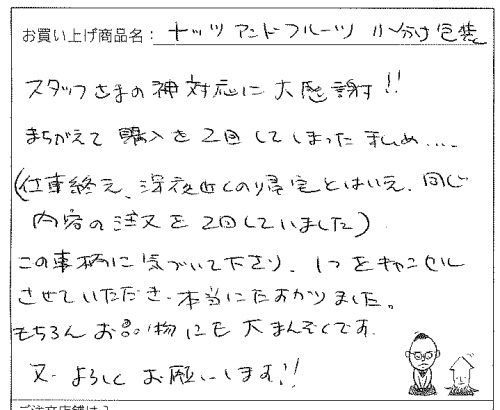 お買い上げ商品名: ナッツアンドフルーツ 小分け包装
スタッフさまの神対応に大感謝!!
まちがえて購入を2回してしまった私め....
(仕事終え、深夜近くのり帰宅とはいえ、同じ
内容の注文を2回していました)
この事柄に気づいて下さり、1つをキャンセル
させていただき、本当にたすかりました。
もちろんお買い物にも大まんぞくです。
又よろしくお願いします!!